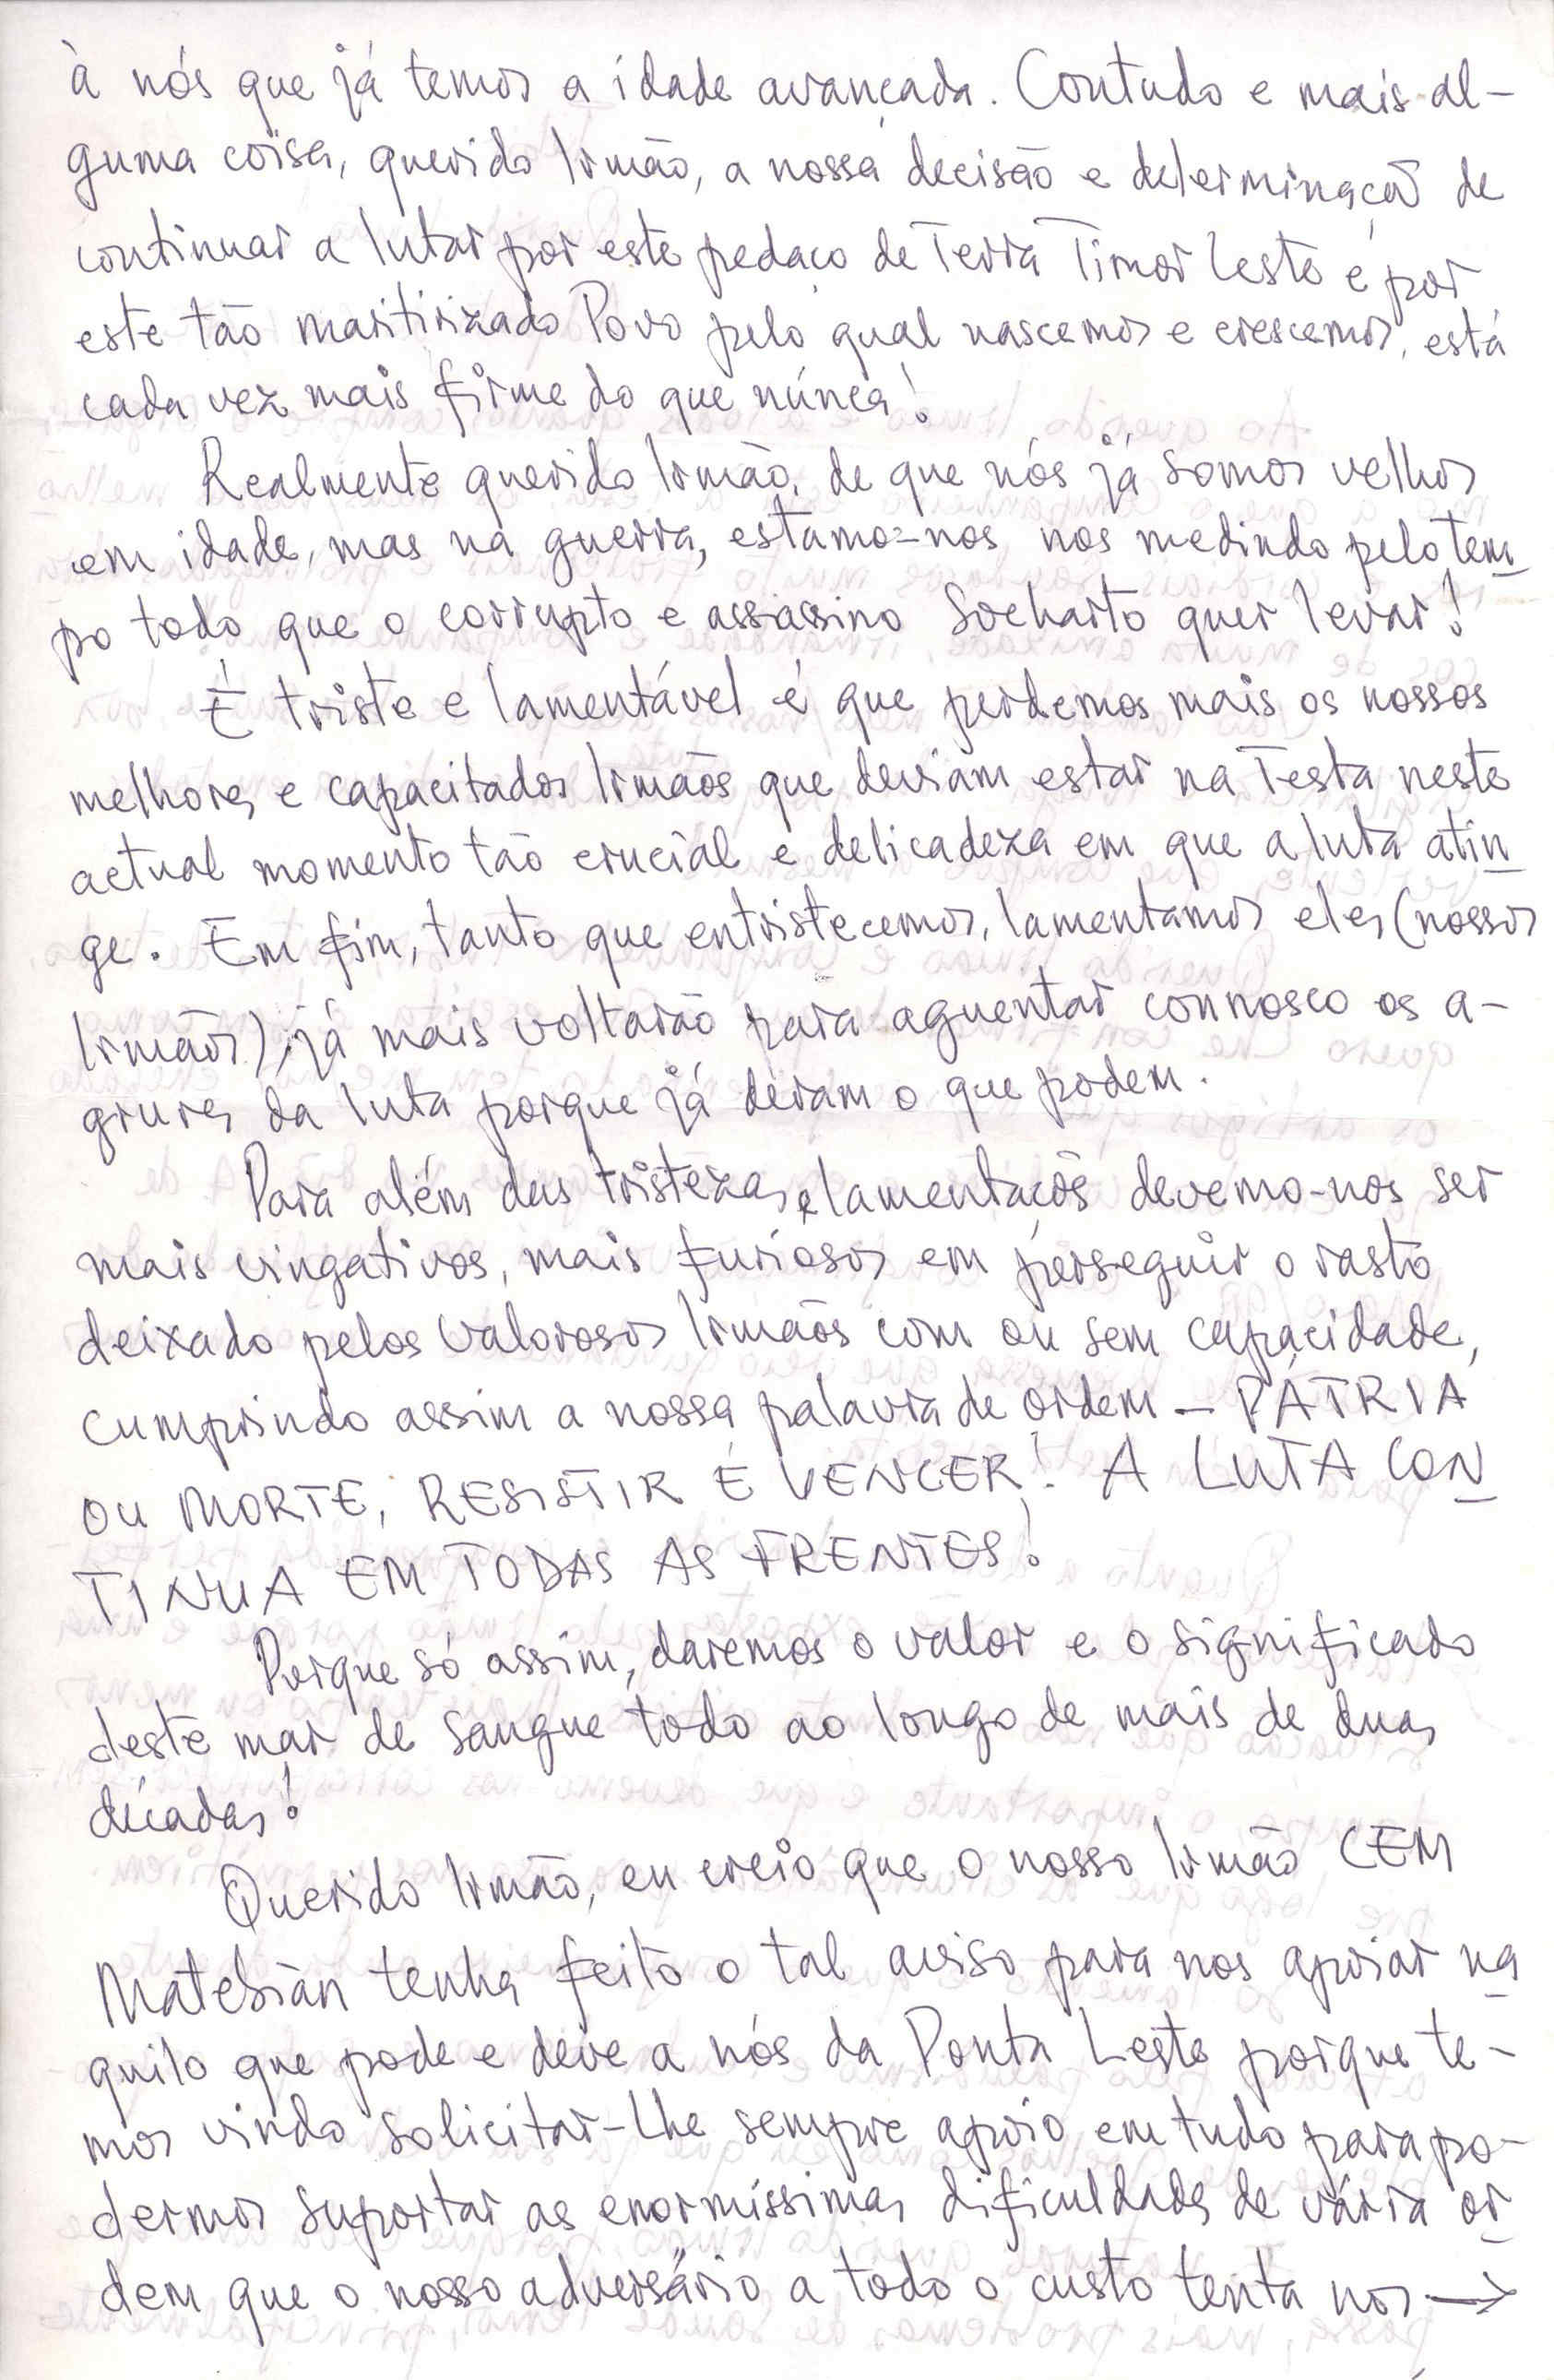 à nós que já temos a idade avançada. Contudo e mais al-
guma coisa, querido Irmão, a nossa decisão e determinação de
continuar a lutar por este pedaço de Terra Timor Leste e por
este tão martirizado Povo pelo qual nascemos e crescemos, está
cada vez mais firme do que núnca!
Realmente querido Irmão, de que nós já somos velhos
em idade, mas na guerra, estamo-nos nos medindo pelo tem
po todo que o corrupto e assassino Soeharto quer levar!
É triste e lamentável é que perdemos mais os nossos
melhores e capacitados Irmãos que deviam estar na Testa neste
actual momento tão crucial e delicadeza em que a luta atin
ge. Em fim, tanto que entristecemos, lamentamos eles (nossos
Irmãos), já mais voltarão para aguentar connosco os a-
grures da luta porque já deram o que podem.
Para além das tristezas e lamentações devemo-nos ser
mais vingativos, mais furiosos em perseguir o rasto
deixado pelos valorosos Irmãos com ou sem capacidade,
cumprindo assim a nossa palavra de ordem - PÁTRIA
OU MORTE, RESISTIR É VENCER! A LUTA CON
TINUA EM TODAS AS FRENTES!
Porque só assim, daremos o valor e o significado
deste mar de sangue todo ao longo de mais de duas
décadas!
Querido Irmão, eu creio que o nosso Irmão CEM
Matebian tenha feito o tal aviso para nos apoiar na
quilo que pode e deve a nós da Ponta Leste porque te-
mos vindo solicitar-lhe sempre apoio em tudo para po-
dermos suportar as enormíssimas dificuldades de vária or
dem que o nosso adversário a todo o custo tenta nos →